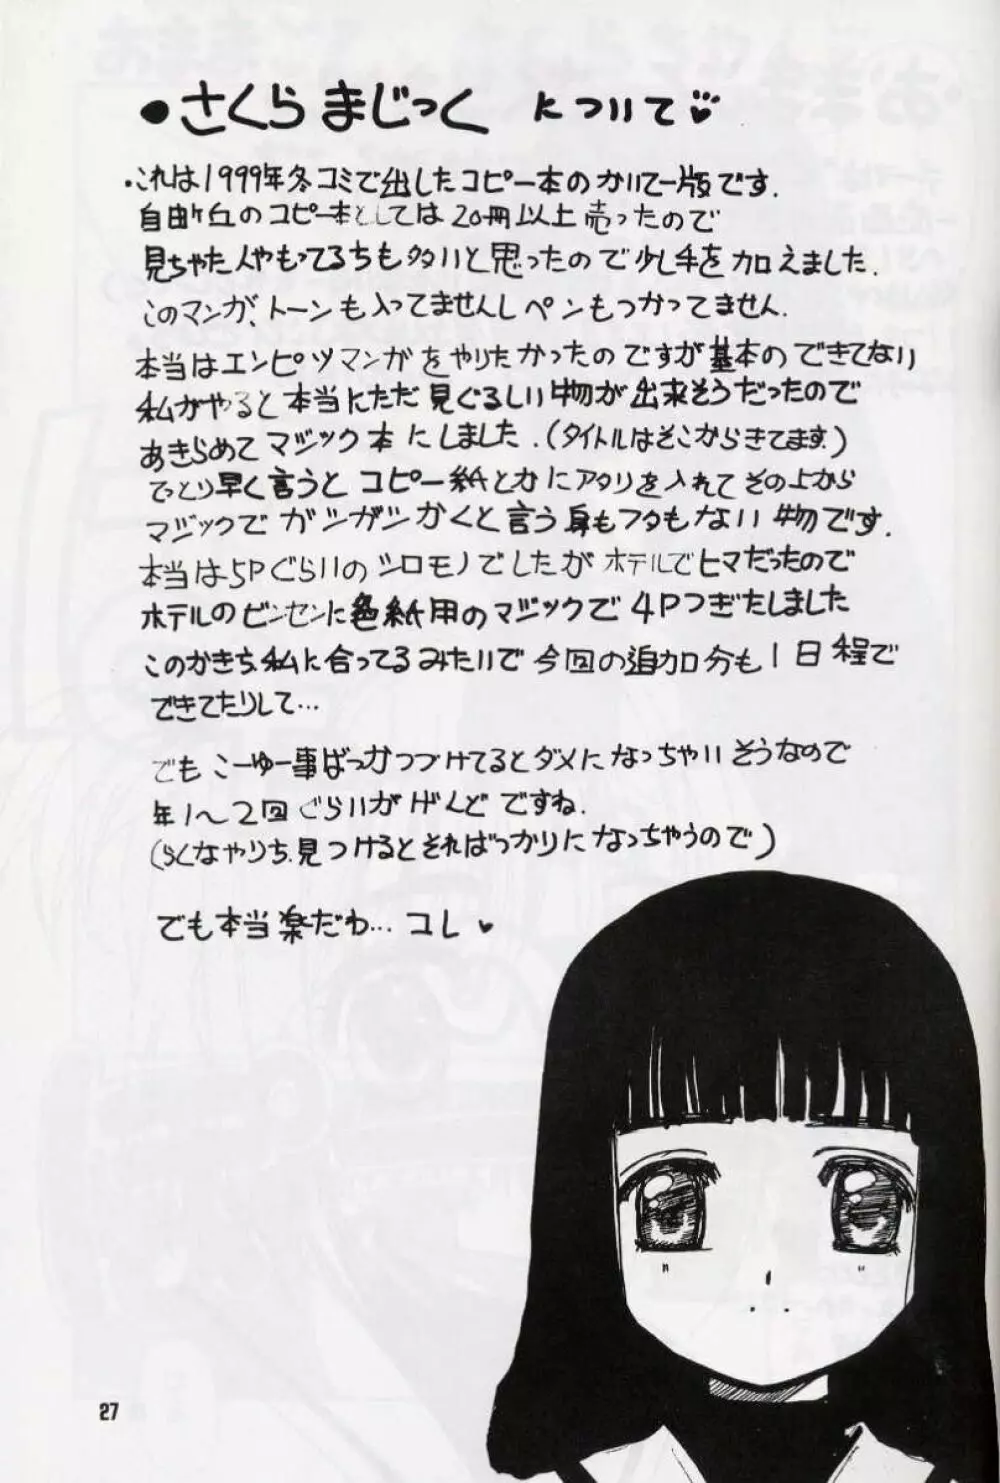 ●さくらまじっく について
・これは1999年冬コミで出したコピー本のかいてー版です.
自由ケ丘のコピー本としては20冊以上売ったので
見ちゃた人やもってるちも多いと思ったので少し手を加えました.
このマンガ、トーンも入ってませんしペンもつかってません.
本当はエンピツマンガをやりたかったのですが基本のできてない
私がやると本当にただ見ぐるしい物が出来そうだったので
あきらめてマジック本にしました.(タイトルはそこからきてます.)
てっとり早く言うと コピー紙とかにアタリを入れてその上から
マジックでガシガシかくと言う身もフタもない物です.
本当は5Pぐらいのシロモノでしたがホテルでヒマだったので
ホテルのビンセンに色紙用のマジックで4Pつぎたしました
このかきち私に合ってるみたいで今回の追加分も1日程で
できてたりして…
でもこーゆー事ばっかつづけてるとダメになっちゃいそうなので
年1〜2回ぐらいがげんどですね.
(らくなやりち見つけるとそればっかりになっちゃうので)
でも本当楽だわ…コレ♥
27